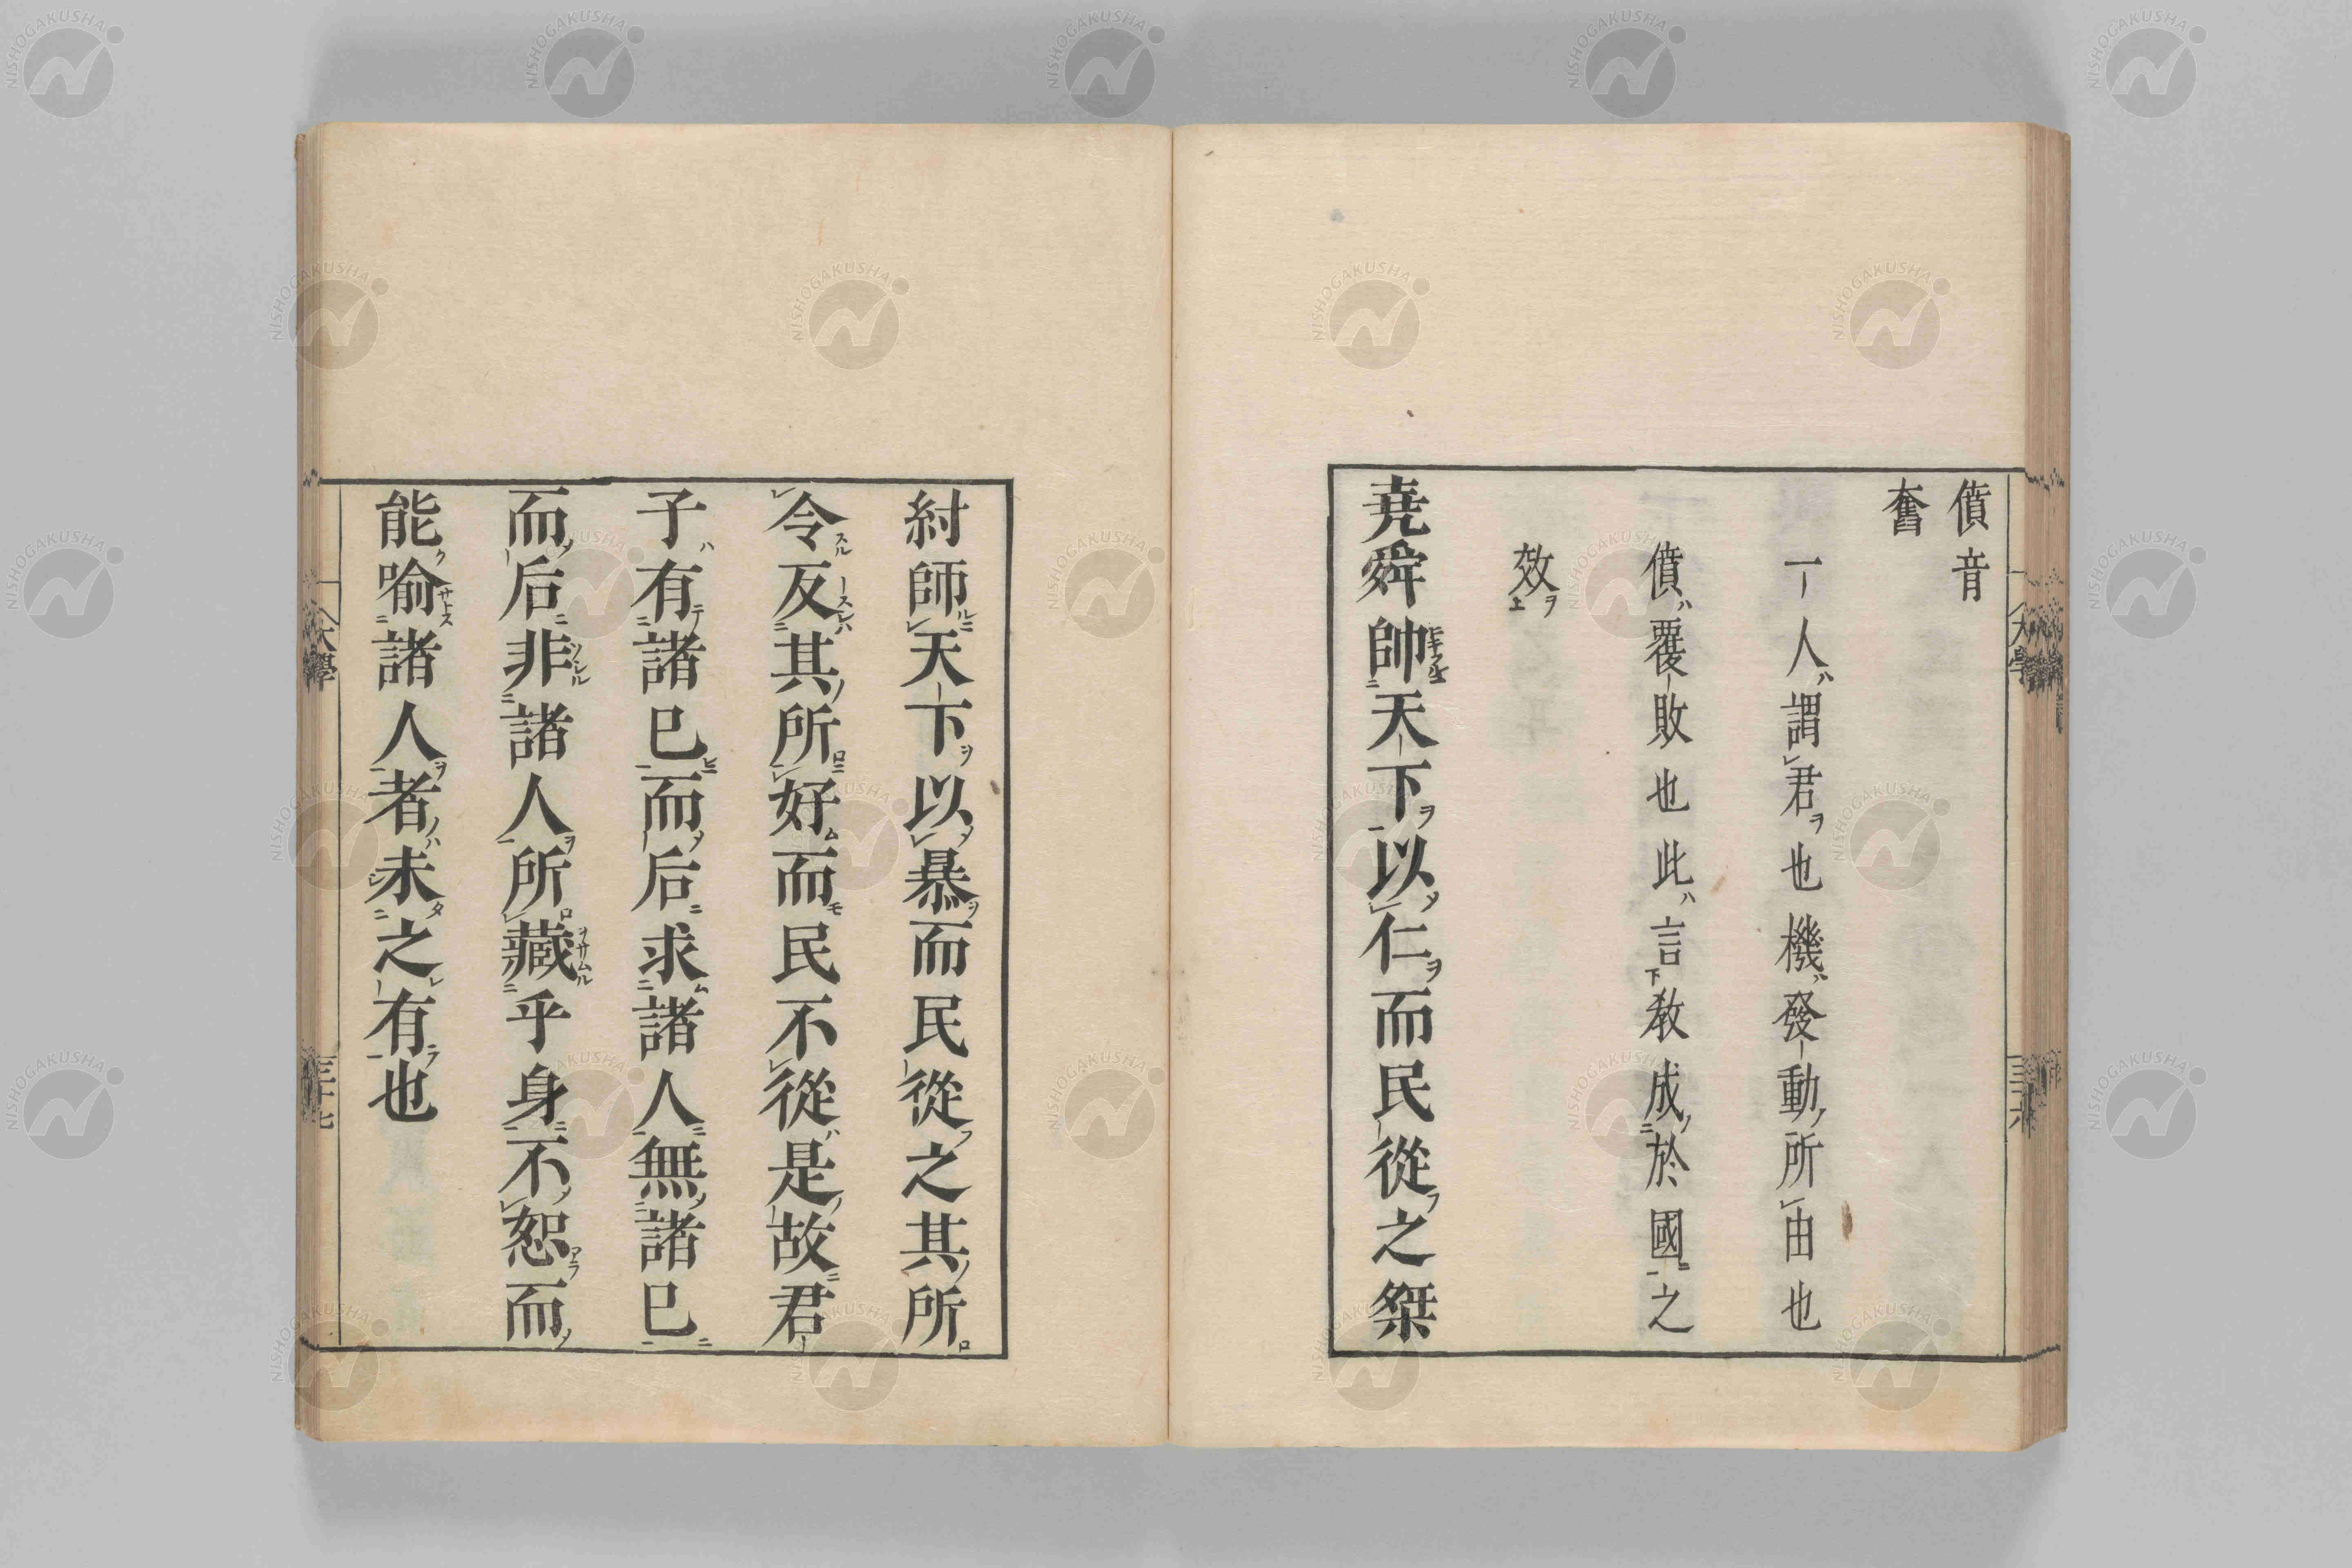 僨音
奮
一人謂君也機發動所由也
僨覆敗也此言教成於國之
效
堯舜帥天下以仁而民從之桀
紂師天下以暴而民從之其所
令反其所好而民不從是故君
子有諸己而后求諸人無諸己
而后非諸人所藏乎身不恕而
能喻諸人者未之有也
大學
三十六
大學
三十七
NISHOGAKUSHA